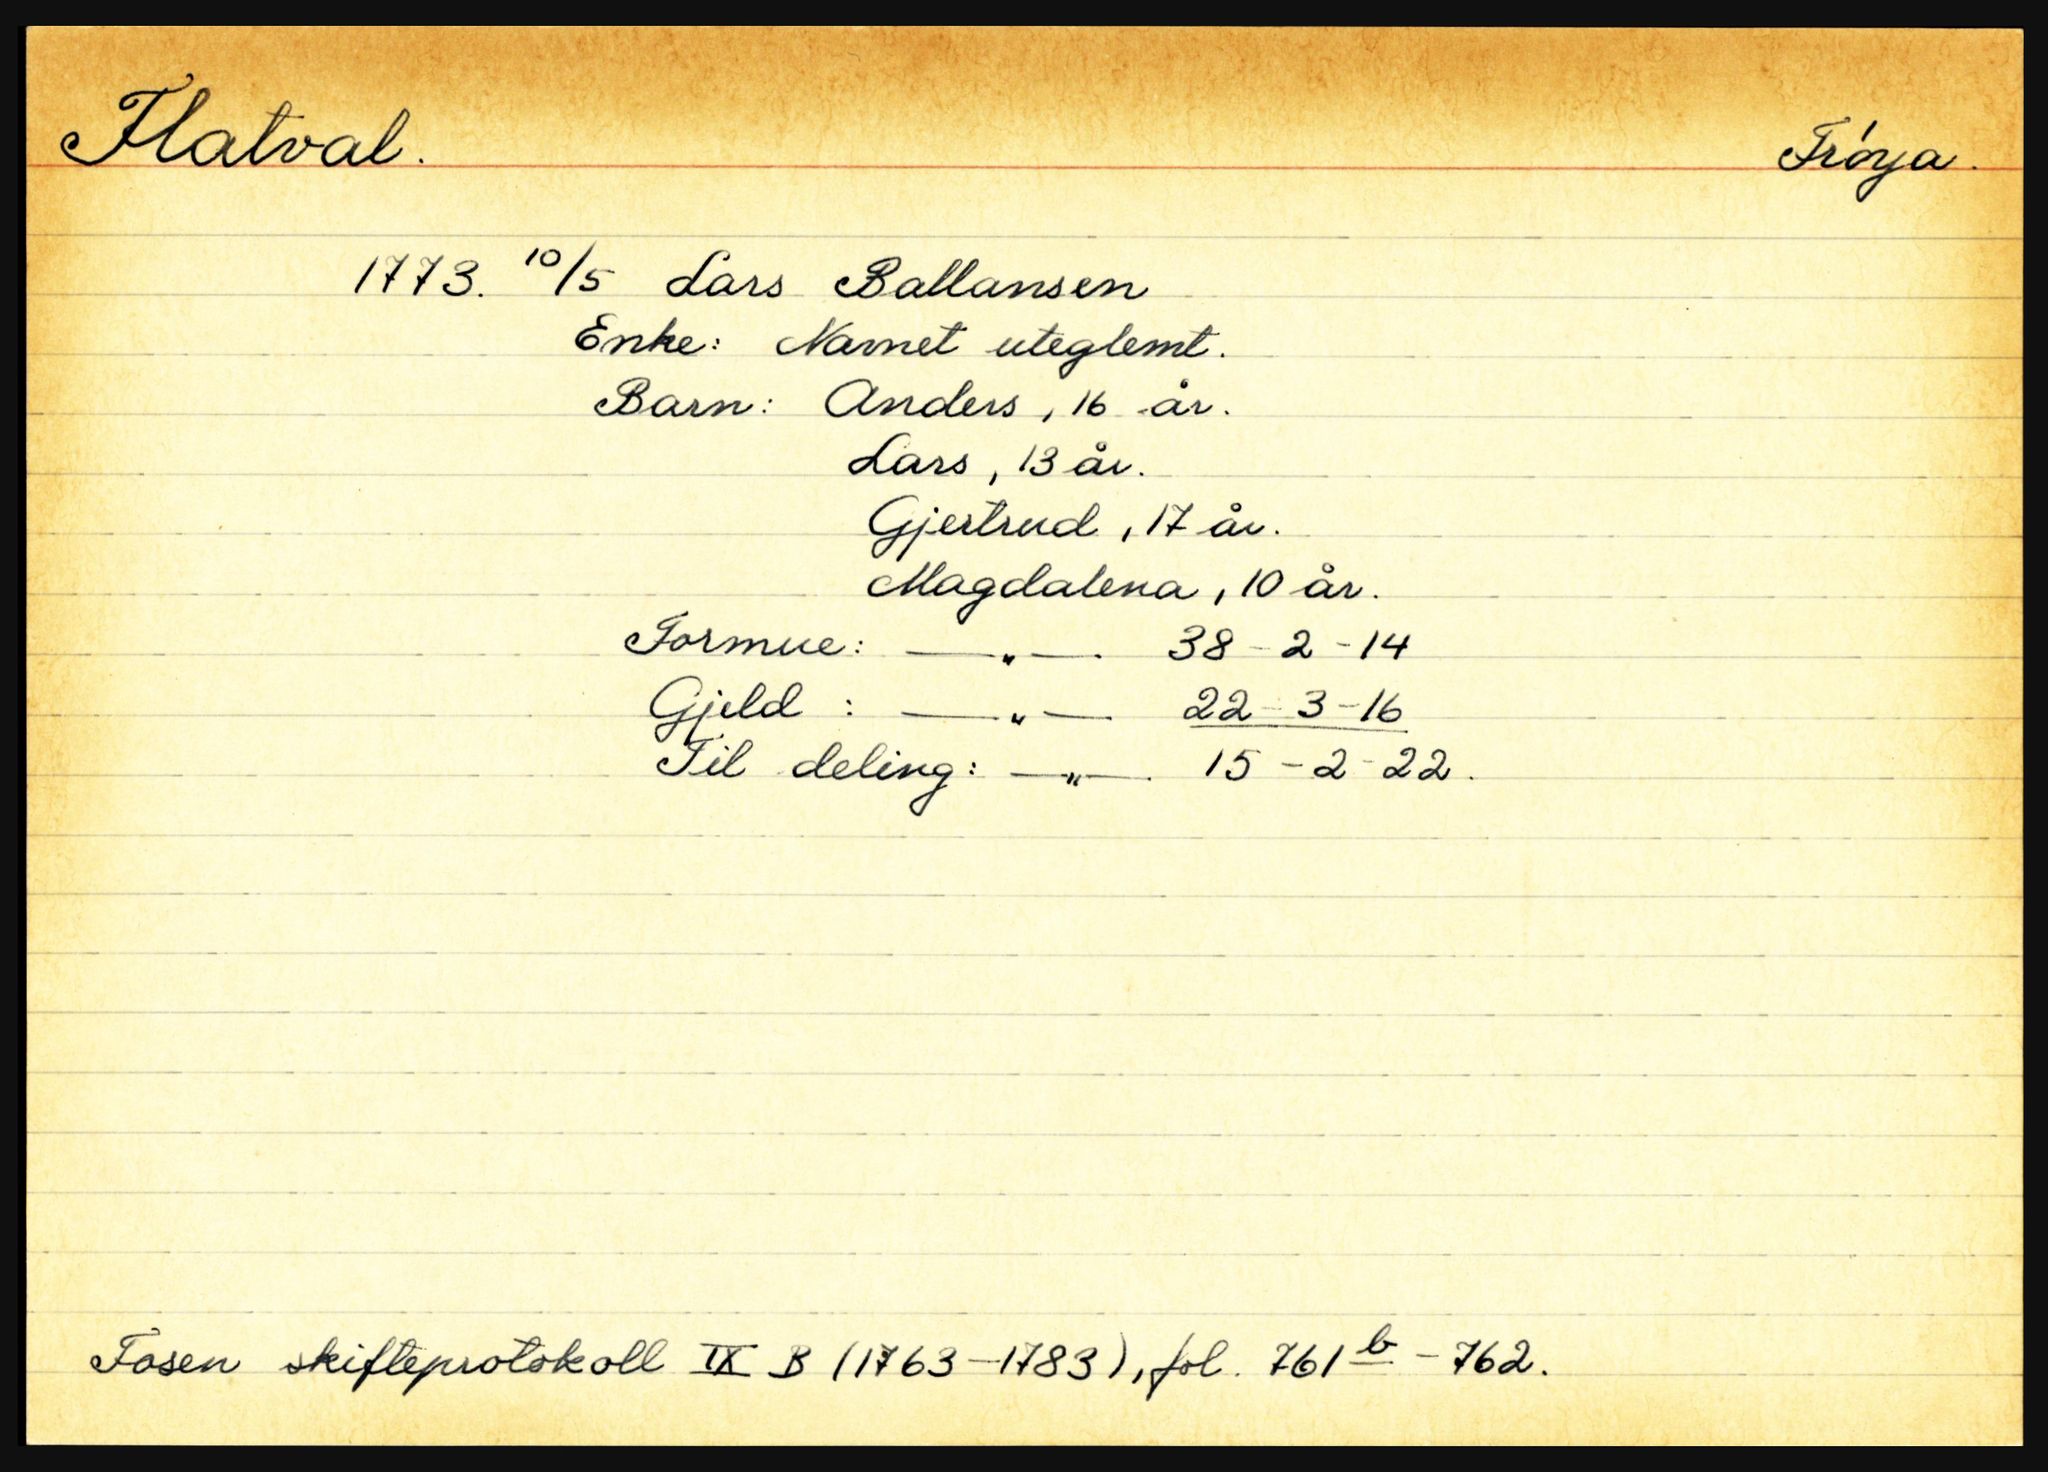 Flatval. Frøya.
1773. 10/5 Lars Ballansen
Enke: Navnet uteglemt.
Barn: Anders, 16 år.
Lars, 13 år.
Gjertrud, 17 år.
Magdalena, 10 år.
Formue: —„—. 38-2-14
Gjeld: —„— 22-3-16
Til deling: —„—. 15-2-22.
Fosen skifteprotokoll IX B (1763-1783), fol. 761b-762.